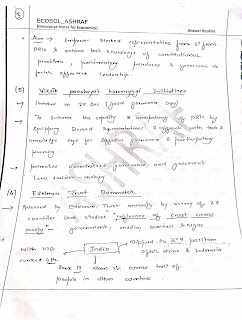 3
ECOSOL_ASHRAF
(Innovative Institute for Economics)
Answer Booklet
→ Aim → Empower Elected representatives from ST from
PRIs & enhance their knowledge of constitutional
provisions, parliamentary procedures & governance to
foster effective leadership.
(5) Viksit panchayat karmayogi Initiatives
→ launched on 25 Dec (good governance day)
→ To enhance the capacity & competency of PRIs by
Equipping Elected representatives & officials with tools &
knowledge for effective governance & participatory
planning
→ promotes decentralised governance and government
(6) Edelman Trust Barometer
→ Released by Edelman Trust annually by survey of 28
countries that studies "influence of trust across
society" - government, media, business & NGOs
India
slipped to 3rd position
after China & Indonesia
Rank 13 when it comes trust of
people in other countries